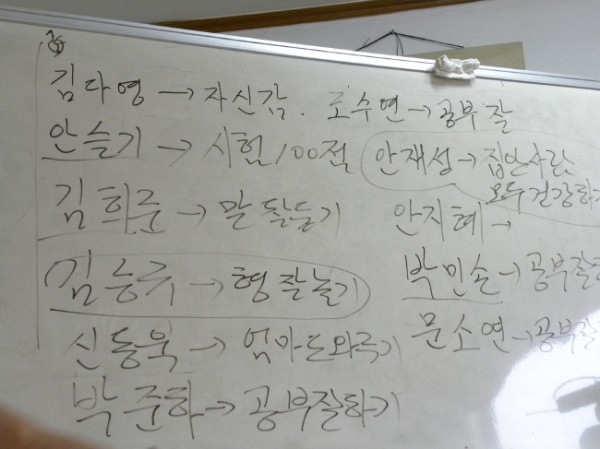 김다영 → 자신감. 조수연 → 공부 잘
안슬기 → 시험 100점 안재성 → 집안사람 모두 건강하기
김희준 → 말 잘듣기 안지혜 →
김승규 → 형 잘놀기 박민손 → 공부잘하
신동욱 → 엄마도와주기 문소연 → 공부잘
박준하 → 공부잘하기